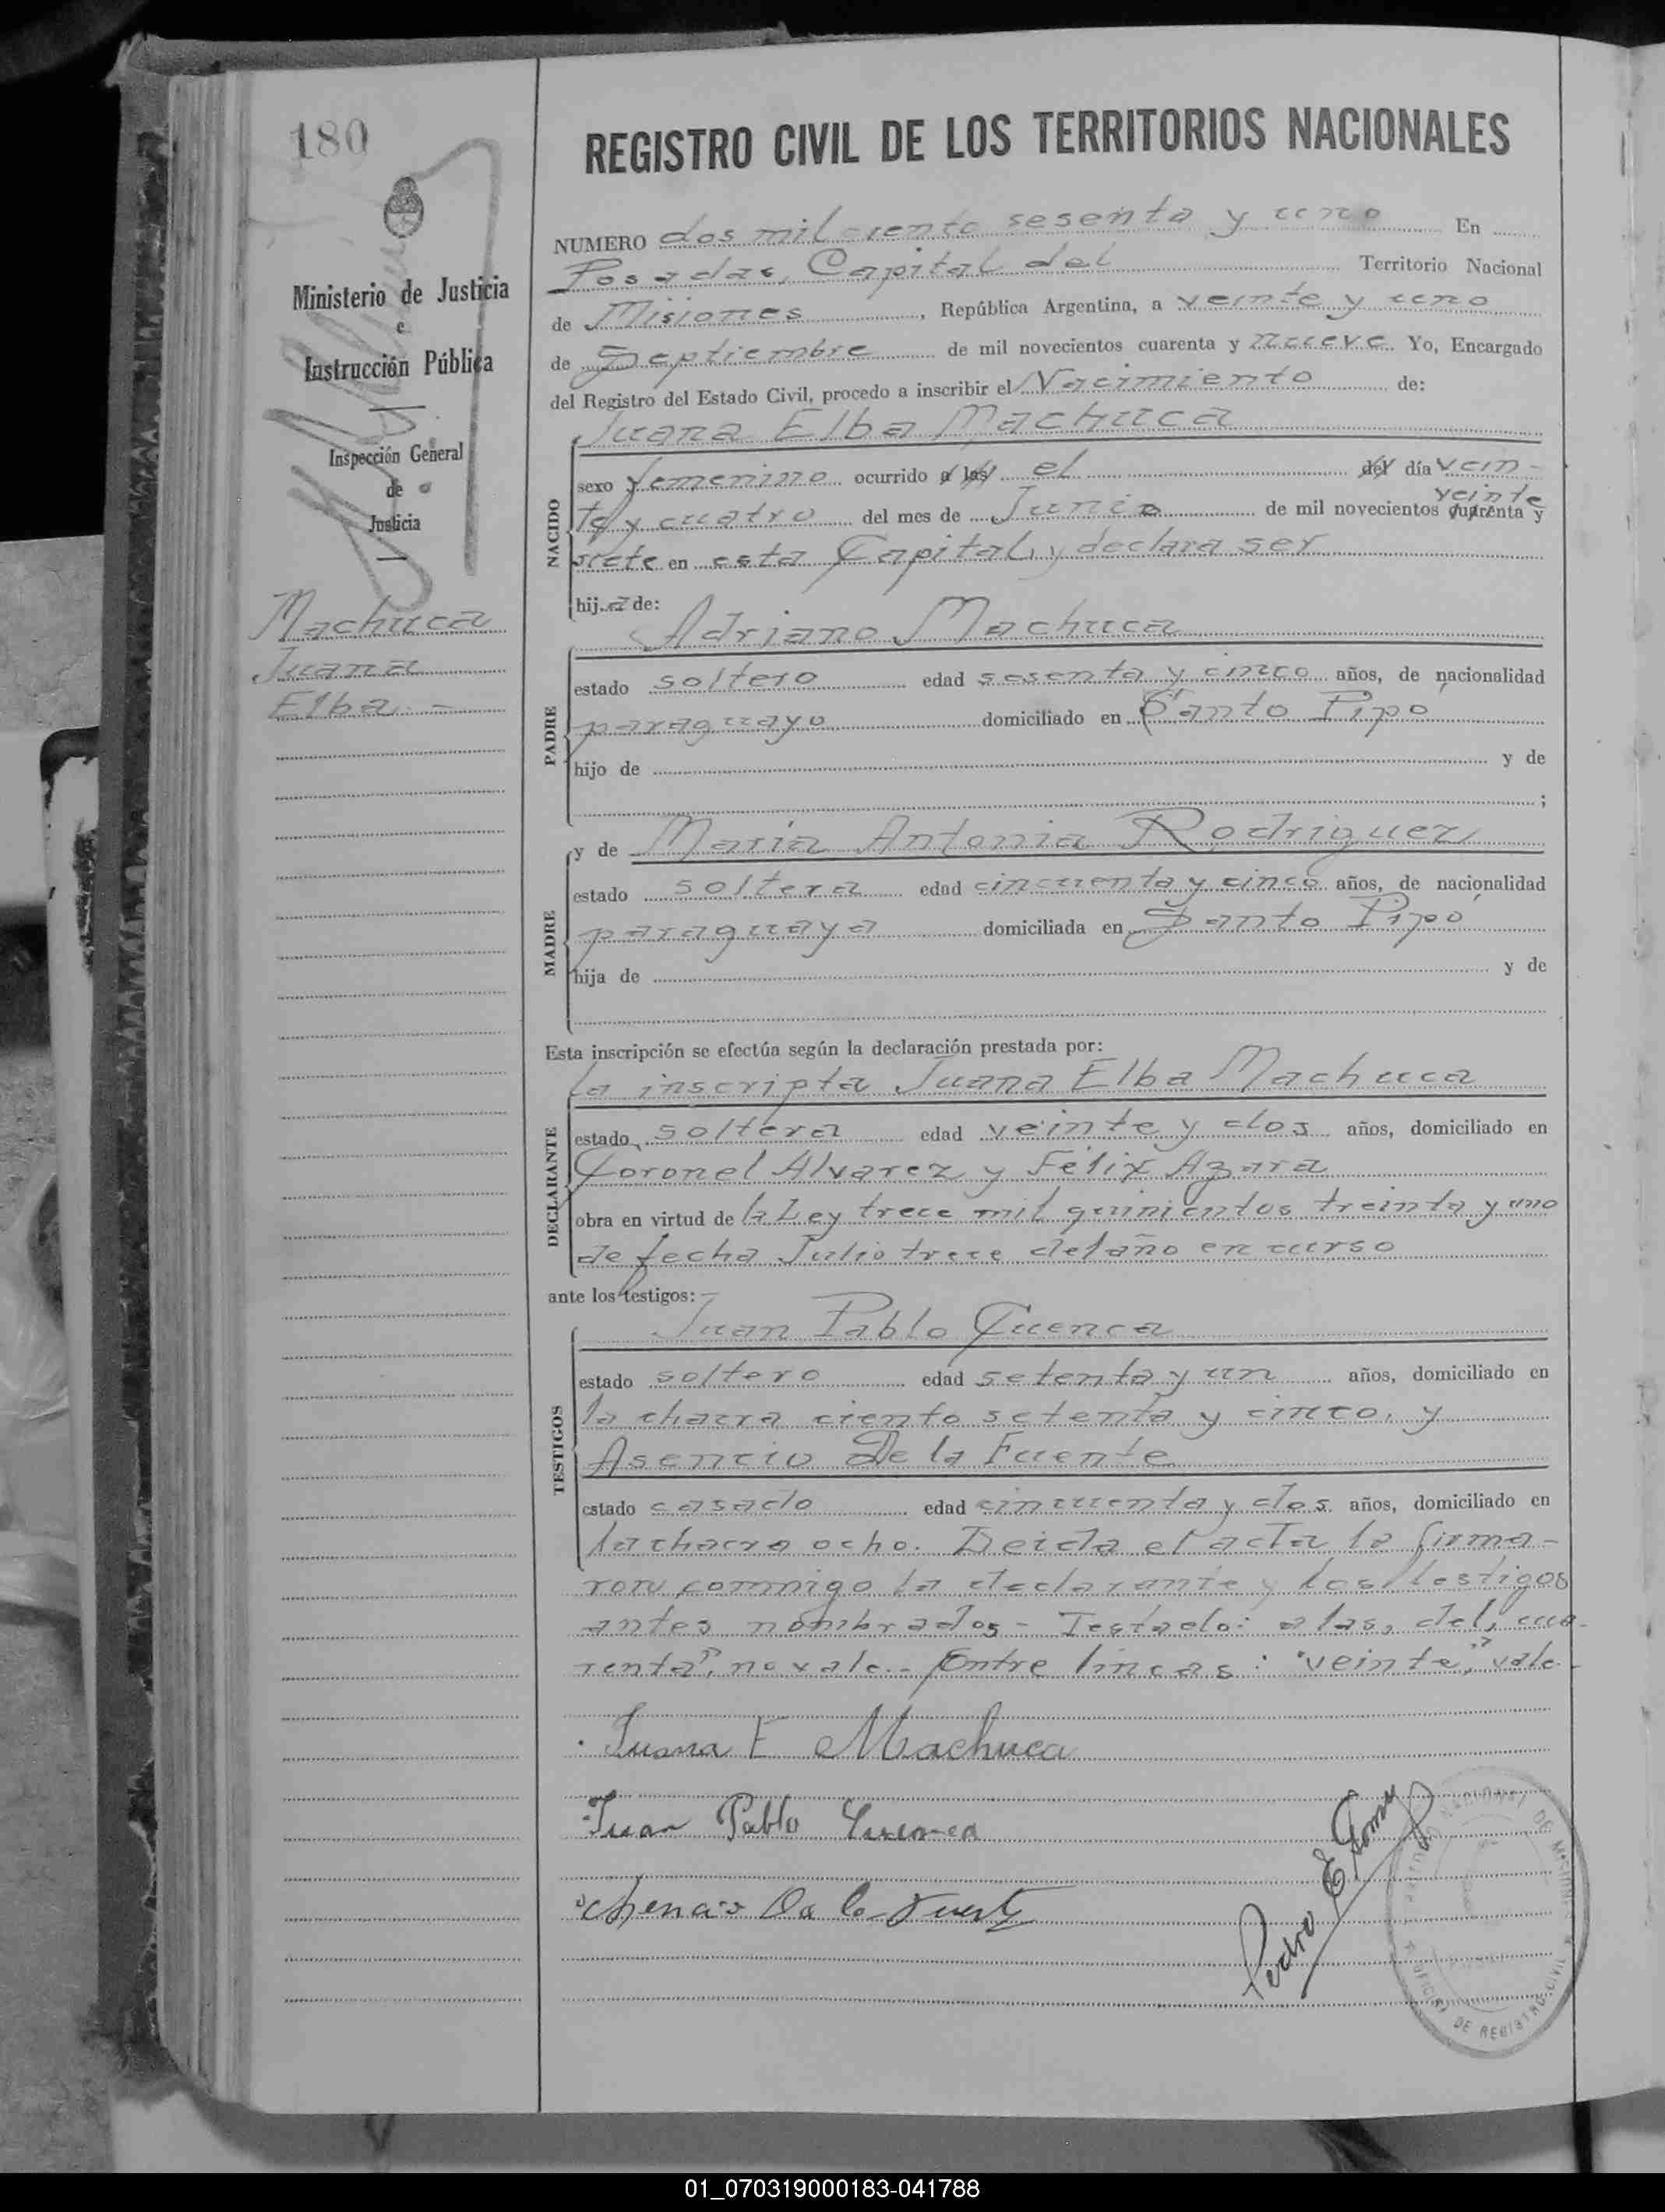 180
REGISTRO CIVIL DE LOS TERRITORIOS NACIONALES
Ministerio de Justicia
e
Instrucción Pública
Inspección General
de
Justicia
Machuca
Juana
Elba. -
NUMERO dos mil ciento sesenta y uno En
Posadas, Capital del Territorio Nacional
de Misiones, República Argentina, a veinte y uno
de Septiembre de mil novecientos cuarenta y nueve. Yo, Encargado
del Registro del Estado Civil, procedo a inscribir el Nacimiento de:
Juana Elba Machuca
NACIDO
sexo femenino ocurrido a las el del día vein-
veinte
te y cuatro del mes de Junio de mil novecientos cuarenta y
siete en esta Capital, y declara ser
hija de:
Adriano Machuca
PADRE
estado soltero edad sesenta y cinco años, de nacionalidad
paraguayo domiciliado en Santo Pipó
hijo de y de
;
y de Maria Antonia Rodriguez
MADRE
estado soltera edad cincuenta y cinco años, de nacionalidad
paraguaya domiciliada en Santo Pipó
hija de y de
Esta inscripción se efectúa según la declaración prestada por:
la inscripta Juana Elba Machuca
DECLARANTE
estado soltera edad veinte y dos años, domiciliado en
Coronel Alvarez y Félix Azara
obra en virtud de la Ley trece mil quinientos treinta y uno
de fecha Julio trece del año en curso
ante los testigos:
Juan Pablo Cuenca
TESTIGOS
estado soltero edad setenta y un años, domiciliado en
la chacra ciento setenta y cinco, y
Asencio De la Fuente
estado casado edad cincuenta y dos años, domiciliado en
la chacra ocho. Leida el acta la firma-
ron conmigo la declarante y los testigos
antes nombrados - Testado: a las, del, cua-
renta", no vale.- Entre lineas: "veinte", vale.
Juana E Machuca
Juan Pablo Cuenca
De la Fuente
Pedro E Gomez
NACIONAL DE MISIONES
OFICINA DE REGISTRO CIVIL
01_070319000183-041788